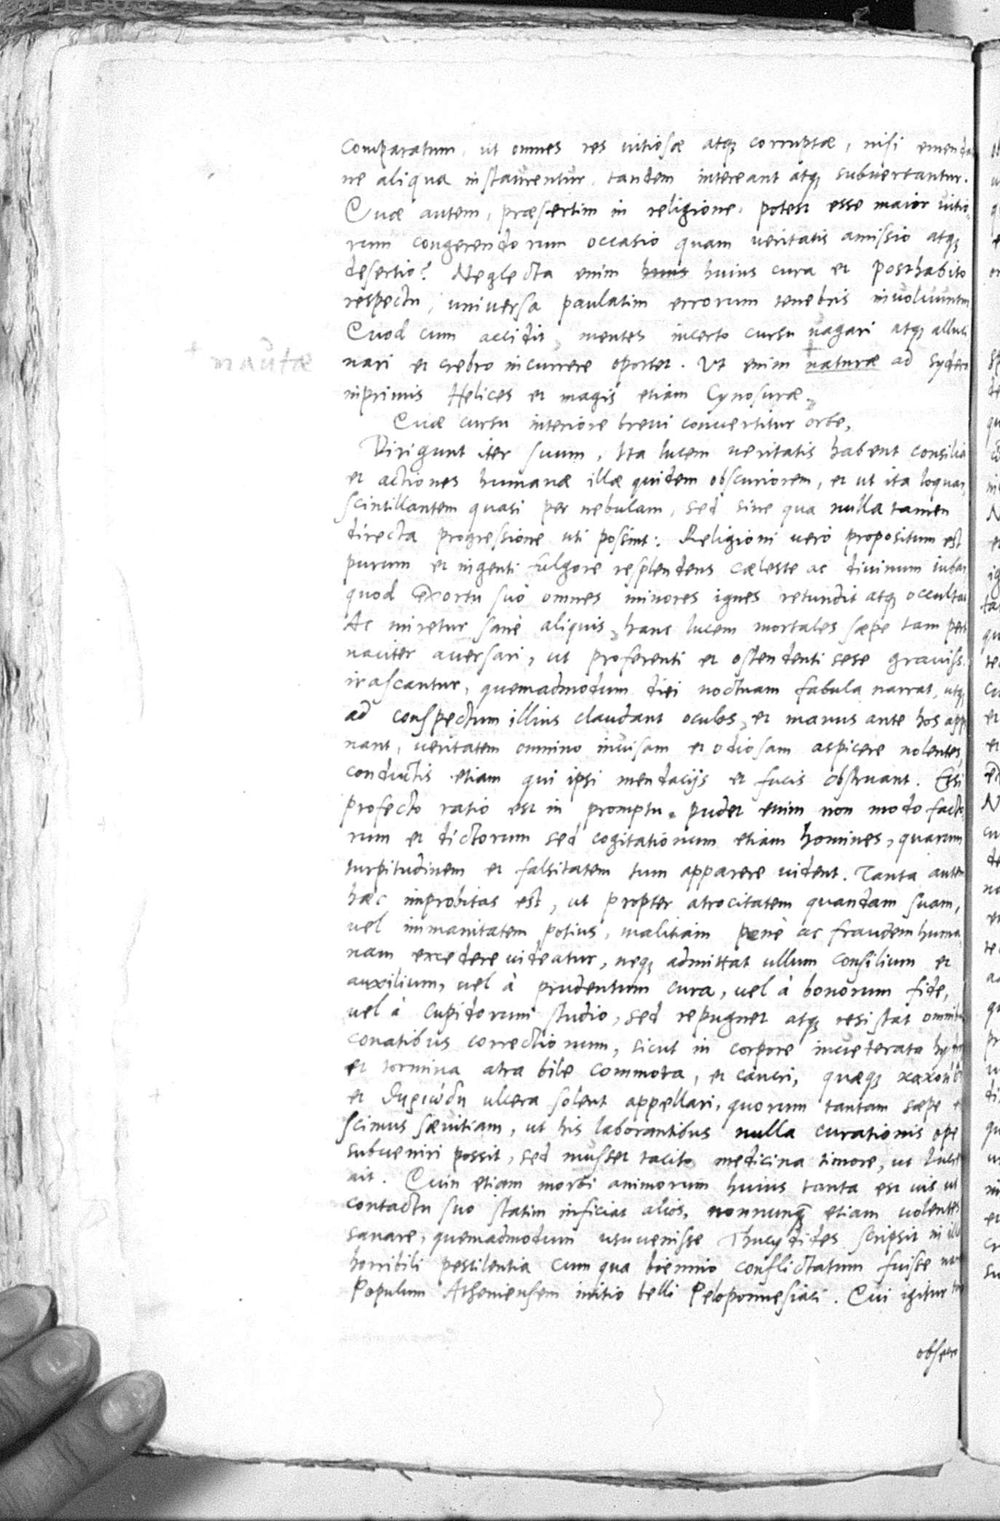 comparatum, ut omnes res uitiosæ atq; corruptæ, nisi emenda
ne aliqua instaurentur, tandem intereant atq; subuertantur.
Quæ autem, præsertim in religione, potest esse maior uitio,
rum congerendorum occasio quam ueritatis amissio atq;
desertio? Neglecta enim huius cura et posthabito
respectu, uniuersa paulatim errorum tenebris inuoluuntur
Quod cum accidit, mentes incerto cursu uagari atq; alluci
nari et crebro incurrere oportet. Ut enim naturæ ad sydera
+ nautæ
inprimis Helices et magis etiam Cynosuræ,
Quæ cursu interiore breui conuertitur orbe,
Dirigunt iter suum, Ita lucem ueritatis habent consilia
et actiones humanæ illæ quidem obscuriorem, et ut ita loquar
scintillantem quasi per nebulam, sed sine qua nulla tamen
directa progressione uti possint: Religioni uerò propositum est
purum et ingenti fulgore resplendens cæleste ac diuinum iubar
quod exortu suo omnes minores ignes retundit atq; occultat
Ac miretur sanè aliquis, hanc lucem mortales sæpe tam perti
naciter auersari, ut proferenti et ostendenti sese grauiss.
irascantur, quemadmodum diei noctuam fabula narrat, utq;
ad conspectum illius claudant oculos, et manus ante hos app
nant, ueritatem omnino inuisam et odiosam aspicere nolentes,
conductis etiam qui ipsi mendacijs et fucis obstruant. Etsi
profecto ratio est in promptu. pudet enim non modo facto
rum et dictorum sed cogitationum etiam homines, quarum
turpitudinem et falsitatem tum apparere uident. Tanta autem
hæc improbitas est, ut propter atrocitatem quandam suam,
uel immanitatem potius, malitiam penè ac fraudem huma
nam excedere uideatur, neq; admittat ullum consilium et
auxilium, uel à prudentum cura, uel à bonorum fide,
uel à cupidorum studio, sed repugnet atq; resistat omnibus
conatibus correctionum, sicut in corpore inueterata
et tormina atra bile commota, et cancri, quæq;
et ulcera solent appellari, quorum tantam sæpe
scimus sæuitiam, ut his laborantibus nulla curationis ope
subueniri possit, sed musset tacito medicina timore, ut
ait. Quin etiam morbi animorum huius tanta est uis ut
contactu suo statim inficiat alios, nonnunq̃ etiam uolentes
sanare, quemadmodum usuuenisse Thucydides scripsit in illa
horribili pestilentia cum qua biennio conflictatum fuisse
Populum Atheniensem initio belli Peloponnesiaci. Cui igitur